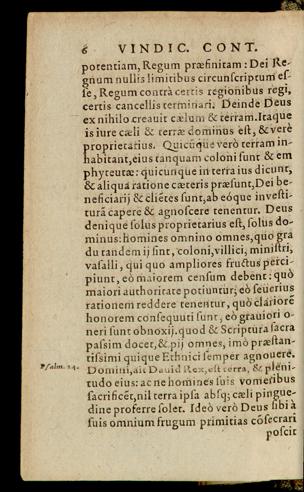 6 VINDIC. CONT.
potentiam, Regum præfinitam: Dei Re-
gnum nullis limitibus circunscriptum es-
se, Regum contrà certis regionibus regi,
certis cancellis terminari. Deinde Deus
ex nihilo creauit cælum & terram. Itaque
is iure cæli & terræ dominus est, & verè
proprietarius. Quicūque verò terram in-
habitant, eius tanquam coloni sunt & em
phyteutæ: quicunque in terra ius dicunt,
& aliqua ratione cæteris præsunt, Dei be-
neficiarij & cliētes sunt, ab eóque inuesti-
turā capere & agnoscere tenentur. Deus
denique solus proprietarius est, solus do-
minus: homines omnino omnes, quo gra
du tandem ij sint, coloni, villici, ministri,
vasalli, qui quo ampliores fructus perci-
piunt, eò maiorem censum debent: quò
maiori authoritate potiuntur, eò seuerius
rationem reddere tenentur, quò clariorē
honorem consequuti sunt, eò grauiori o-
neri sunt obnoxij. quod & Scriptura sacra
passim docet, & pij omnes, imò præstan-
tissimi quique Ethnici semper agnouere.
Psalm. 24. Domini, ait Dauid Rex, est terra, & pleni-
tudo eius: ac ne homines suis vomeribus
sacrificēt, nil terra ipsa absq; cæli pingue-
dine proferre solet. Ideò verò Deus sibi à
suis omnium frugum primitias cōsecrari
poscit